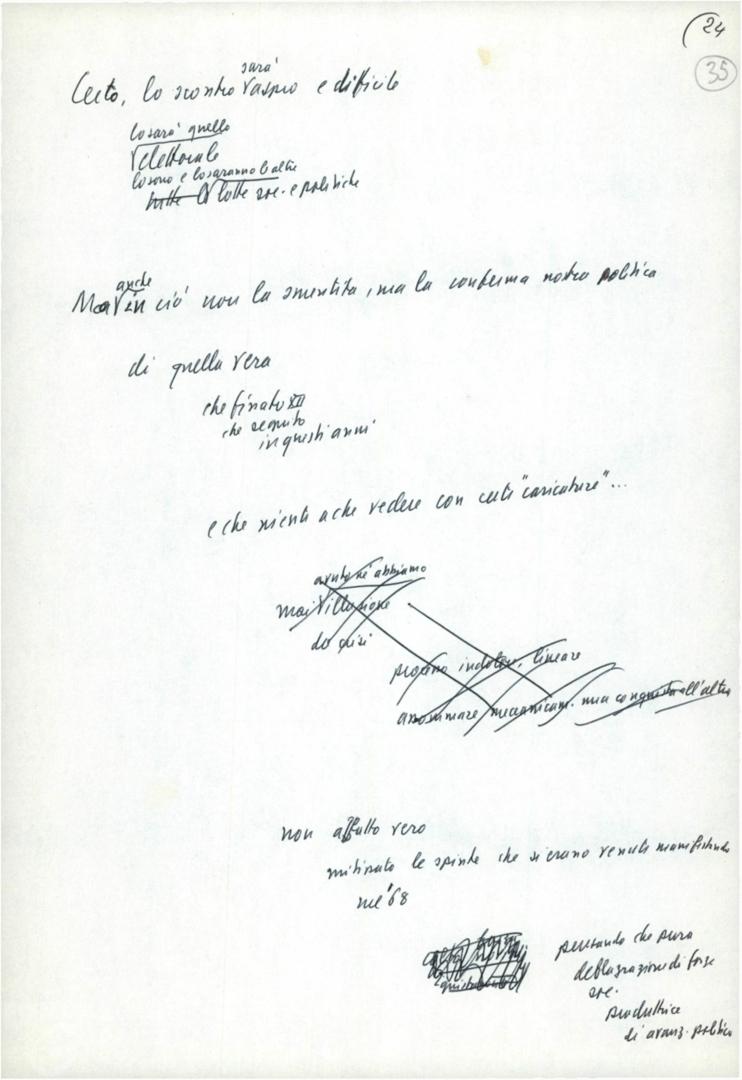 (24
35
sarà
Certo, lo scontro aspro e difficile
lo sarà quello
elettorale
lo sono e lo saranno le altre
tutte le lotte soc. e politiche
anche
Ma in ciò non la smentita, ma la conferma nostra politica
di quella vera
che fissato XII
che seguito
in questi anni
e che nienti a che vedere con certe "caricature"...
avuto né abbiamo
mai illusione
da crisi
processo indolore, lineare
meccanicam. una conquista all'altra
non affatto vero
mitizzato le spinte che si erano venute manifestando
nel '68
pensando che pura
deflagrazione di forze
soc.
produttrice
di avanz. politico